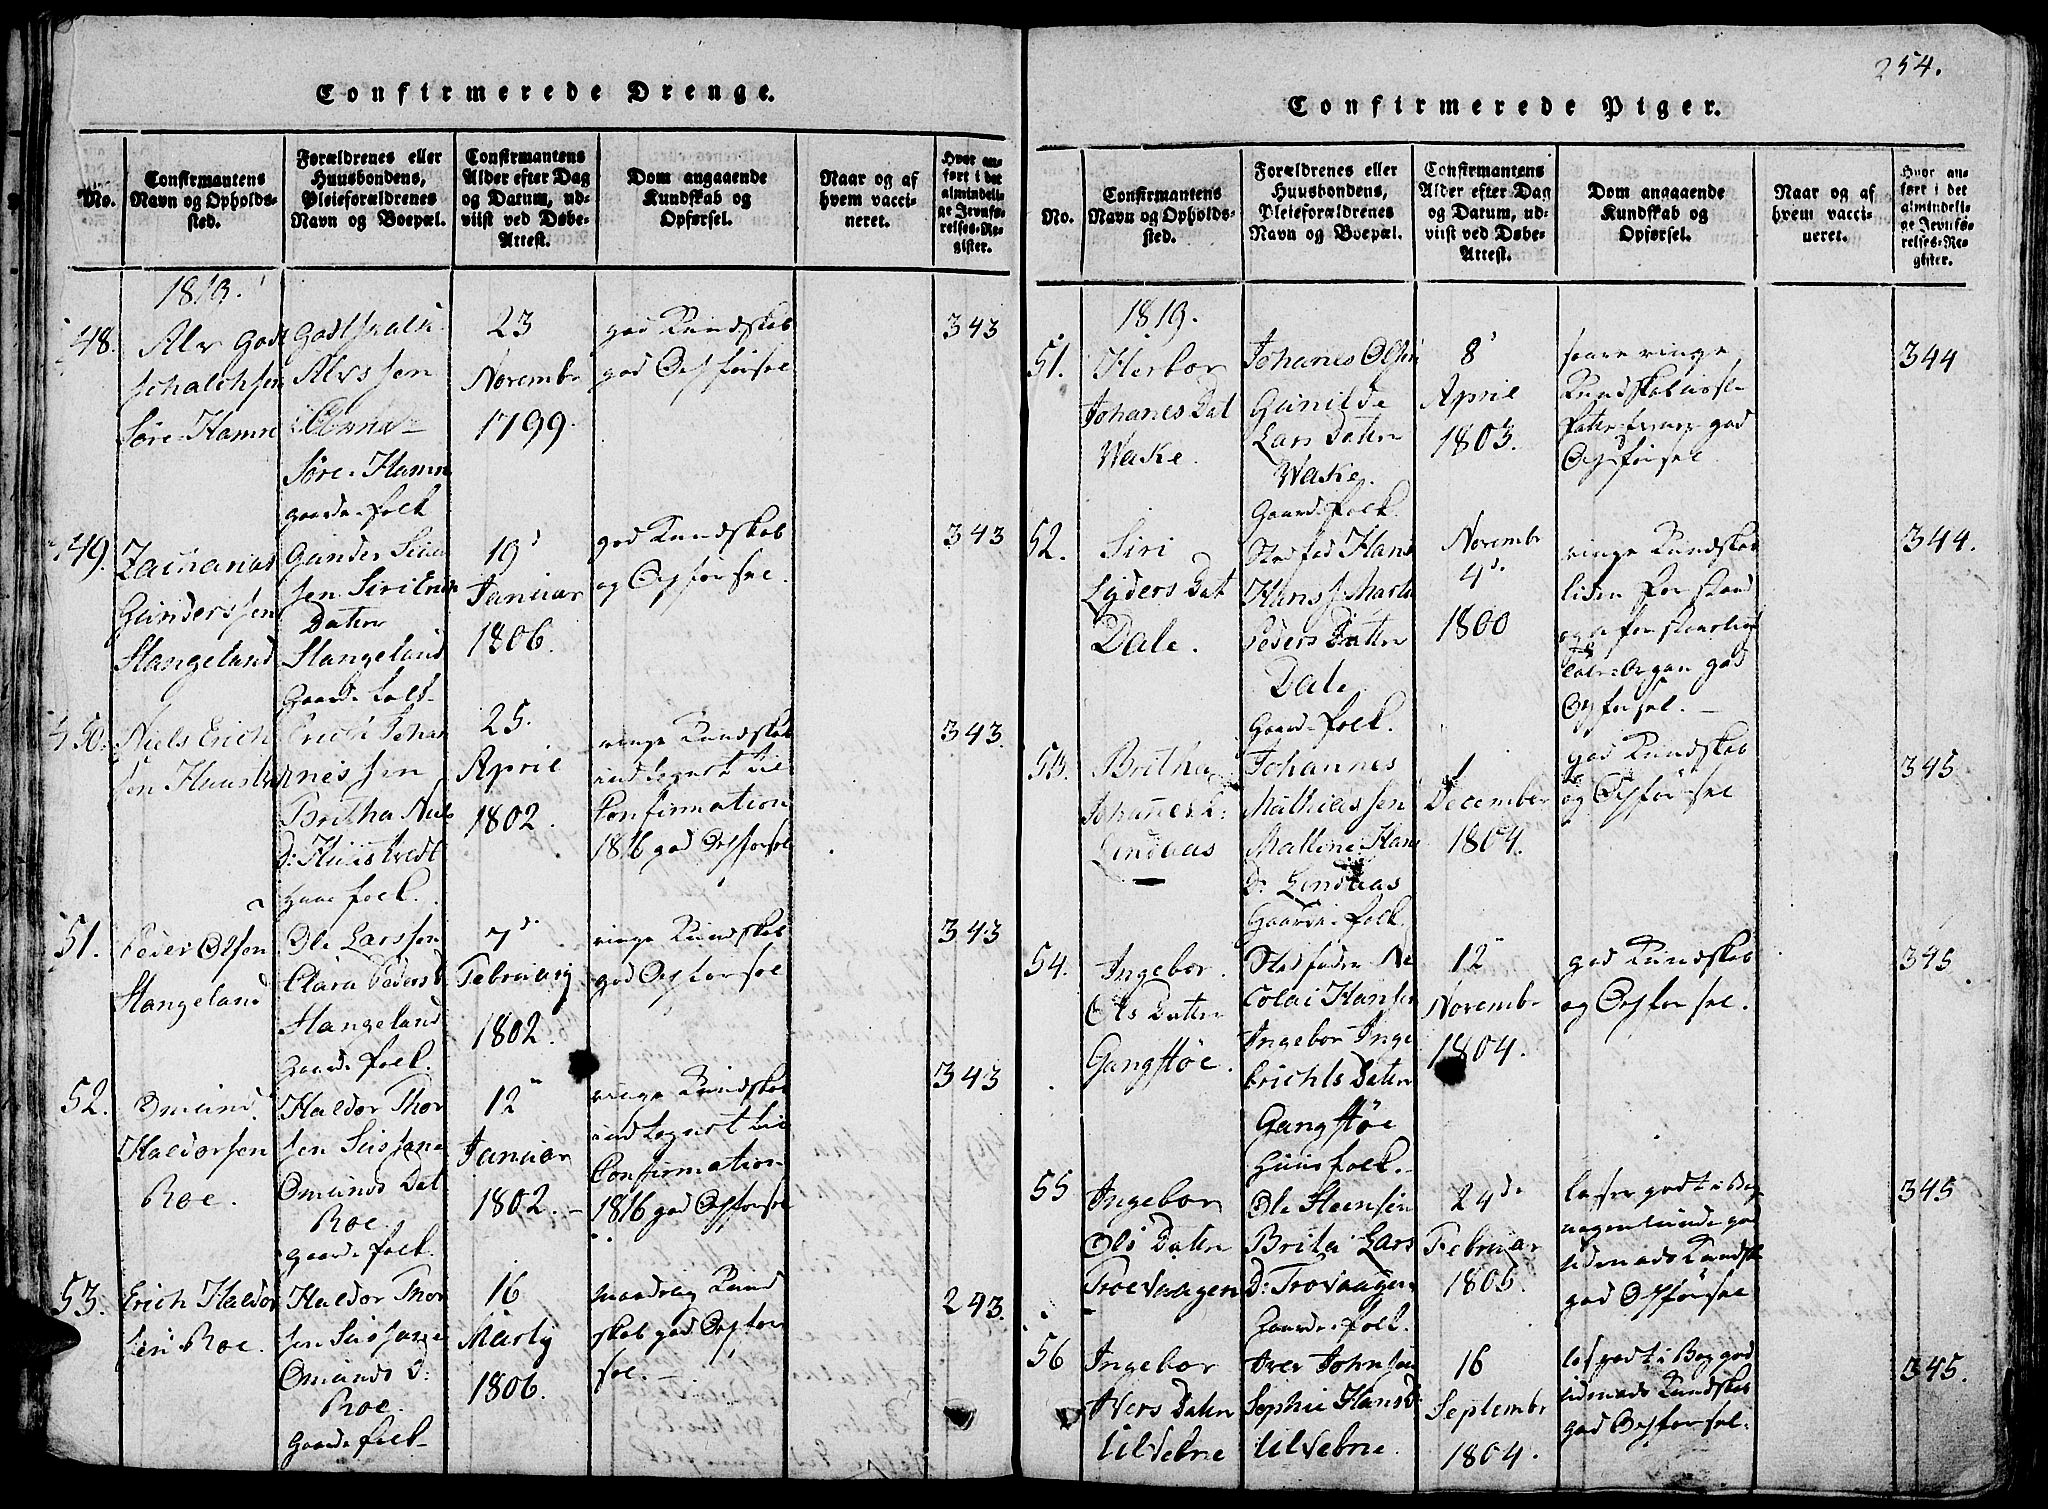 254.
Confirmerede Drenge.
No.
Confirmantens
Navn og Opholds-
sted.
Forældrenes eller
Huusbondens,
Pleieforældrenes
Navn og Boepæl.
Confirmantens
Alder efter Dag
og Datum, ud-
viist ved Døbe-
Attest.
Dom angaaende
Kundskab og
Opførsel.
Naar og af
hvem vacci-
neret.
Hvor an-
ført i det
almindeli-
ge Jevnfø-
relses-Re-
gister.
1819.
48.
Alv Gods
schalchsen
Søre Hamn
Alvssen
Søre Hamn
gaardefolk
23
Novembr
1799.
god Kundskab
god Opførsel
343
49.
Zacharias
Gundersen
Stangeland
Gunder
sen Siri
Datter
Stangeland
Gaardefolk
19d
Januar
1806.
god Kundskab
og Opførsel.
343
50.
Niels Erich
sen
Erich Johan
nessen
Britha Niels
D:
folk.
25.
April
1802.
ringe Kundskab
indtegnet til
Confirmation
1816 god Opførsel
343.
51.
Peder Olsen
Stangeland
Ole Larssen
Clara Peders D
Stangeland
Gaardefolk.
7d
Februarij
1802.
ringe Kundskab
god Opførsel
343
52.
Omund
Haldorsen
Roe.
Haldor Thor
sen
Omunds Dat
Roe.
gaardefolk.
12
Januar
1802.
ringe Kundskab
indtegnet til
Confirmation
1816 god Opførsel
343
53.
Erich Haldor
sen Roe.
Haldor Thor
sen
Omunds D:
Roe.
Gaardefolk
16
Martij
1806.
maadelig Kund
skab god Opfør
sel.
243.
Confirmerede Piger.
No.
Confirmantens
Navn og Opholds-
sted.
Forældrenes eller
Huusbondens,
Pleieforældrenes
Navn og Boepæl.
Confirmantens
Alder efter Dag
og Datum, ud-
viist ved Døbe-
Attest.
Dom angaaende
Kundskab og
Opførsel.
Naar og af
hvem vacci-
neret.
Hvor an-
ført i det
almindeli-
ge Jevnfø-
relses-Re-
gister.
1819.
51.
Herbor
Johanes Dat
Wake.
Johanes Olsen
Gunilde
Lars Datter
Wake.
Gaardefolk.
8
April
1803.
saare ringe
Kundskab
god
Opførsel.
344
52.
Siri
Lyders Dat
Dale.
Stedfad Hans
Hanss Marta
Peders Datter
Dale
Gaardefolk.
Novembr
4d.
1800
ringe Kundskab
liden Forstand
Organ god
Opførsel.
344.
53.
Britha
Johannes D:
Lindaas
Johannes
Mathiassen
Mallene Hans
D: Lindaas
Gaardefolk.
1
December
1804.
god Kundskab
og Opførsel
345
54.
Ingebor
Ols Datter
Gangstøe.
Stedfader Ne
colai Hansen
Ingebor Inge
brichts Datter
Gangstøe
Huusfolk.
12
Novembr
1804.
god Kundskab
og Opførsel.
345
55
Ingebor
Ols Datter
Troevaagen
Ole Steensen
Brita Lars
D: Trovaagen
Gaardefolk.
24de
Februar
1805.
læser godt i Bog
udenads Kundsk
god Opførsel
345
56
Ingebor
Ivers Datter
Ulvebne
Iver Johnsen
Sophie Hans D:
Ulvebne.
16
Septembr
1804.
læs godt i Bog god
udenads Kundskab
god Opførsel.
345.